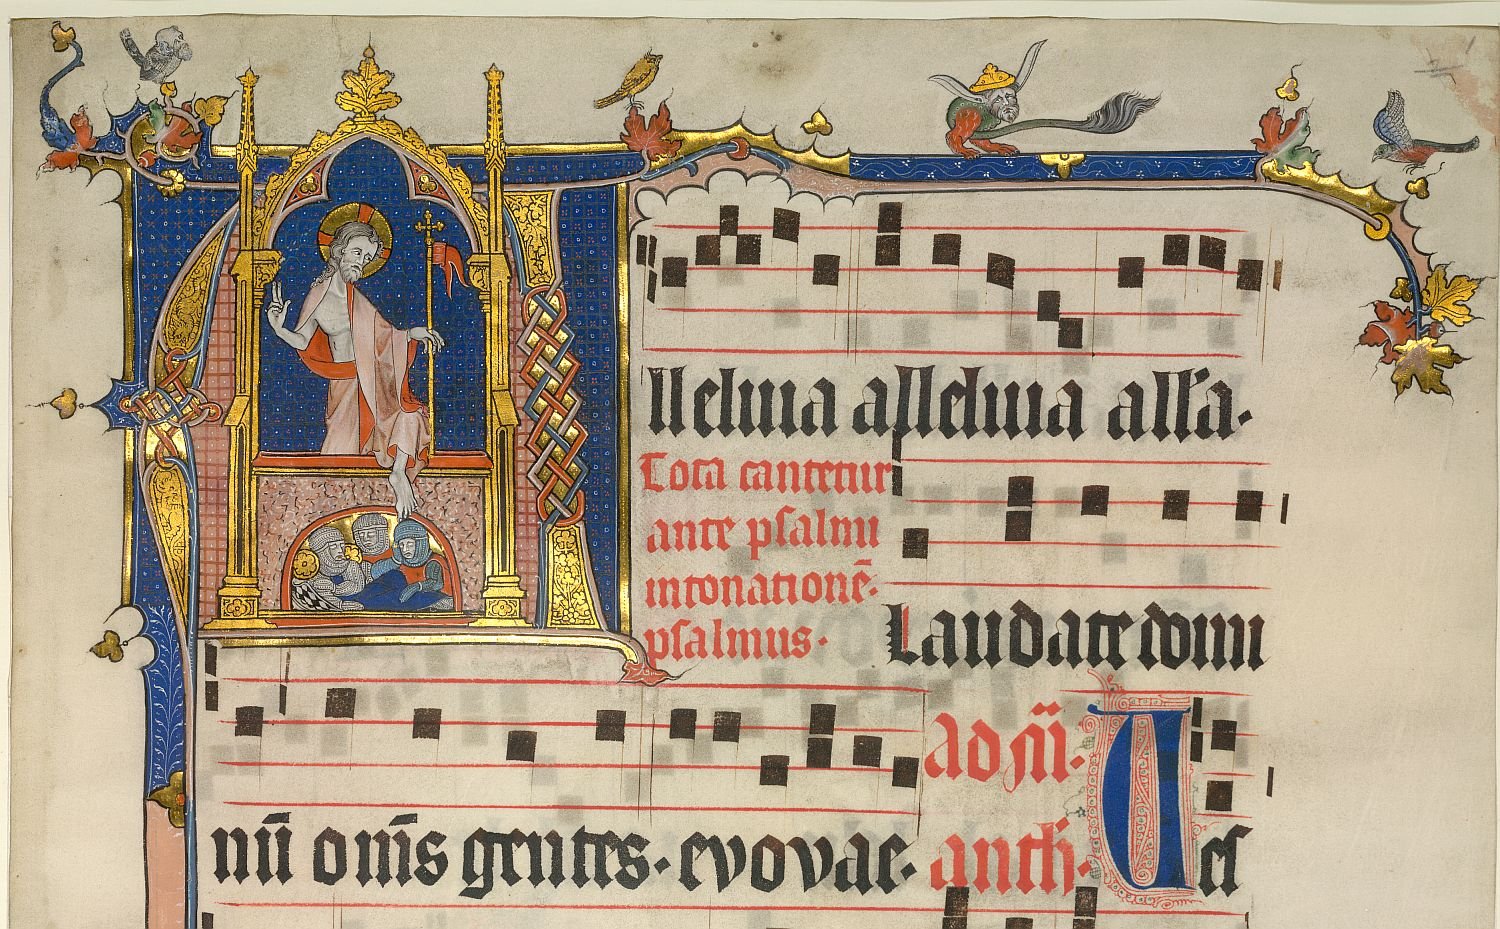 Alleluia alleluia alla·
Tota cantetur
ante psalmi
intonationē·
psalmus·
Laudate domi
nū om̄s gentes· evovae·
ad ṁ·
anth·
Ves